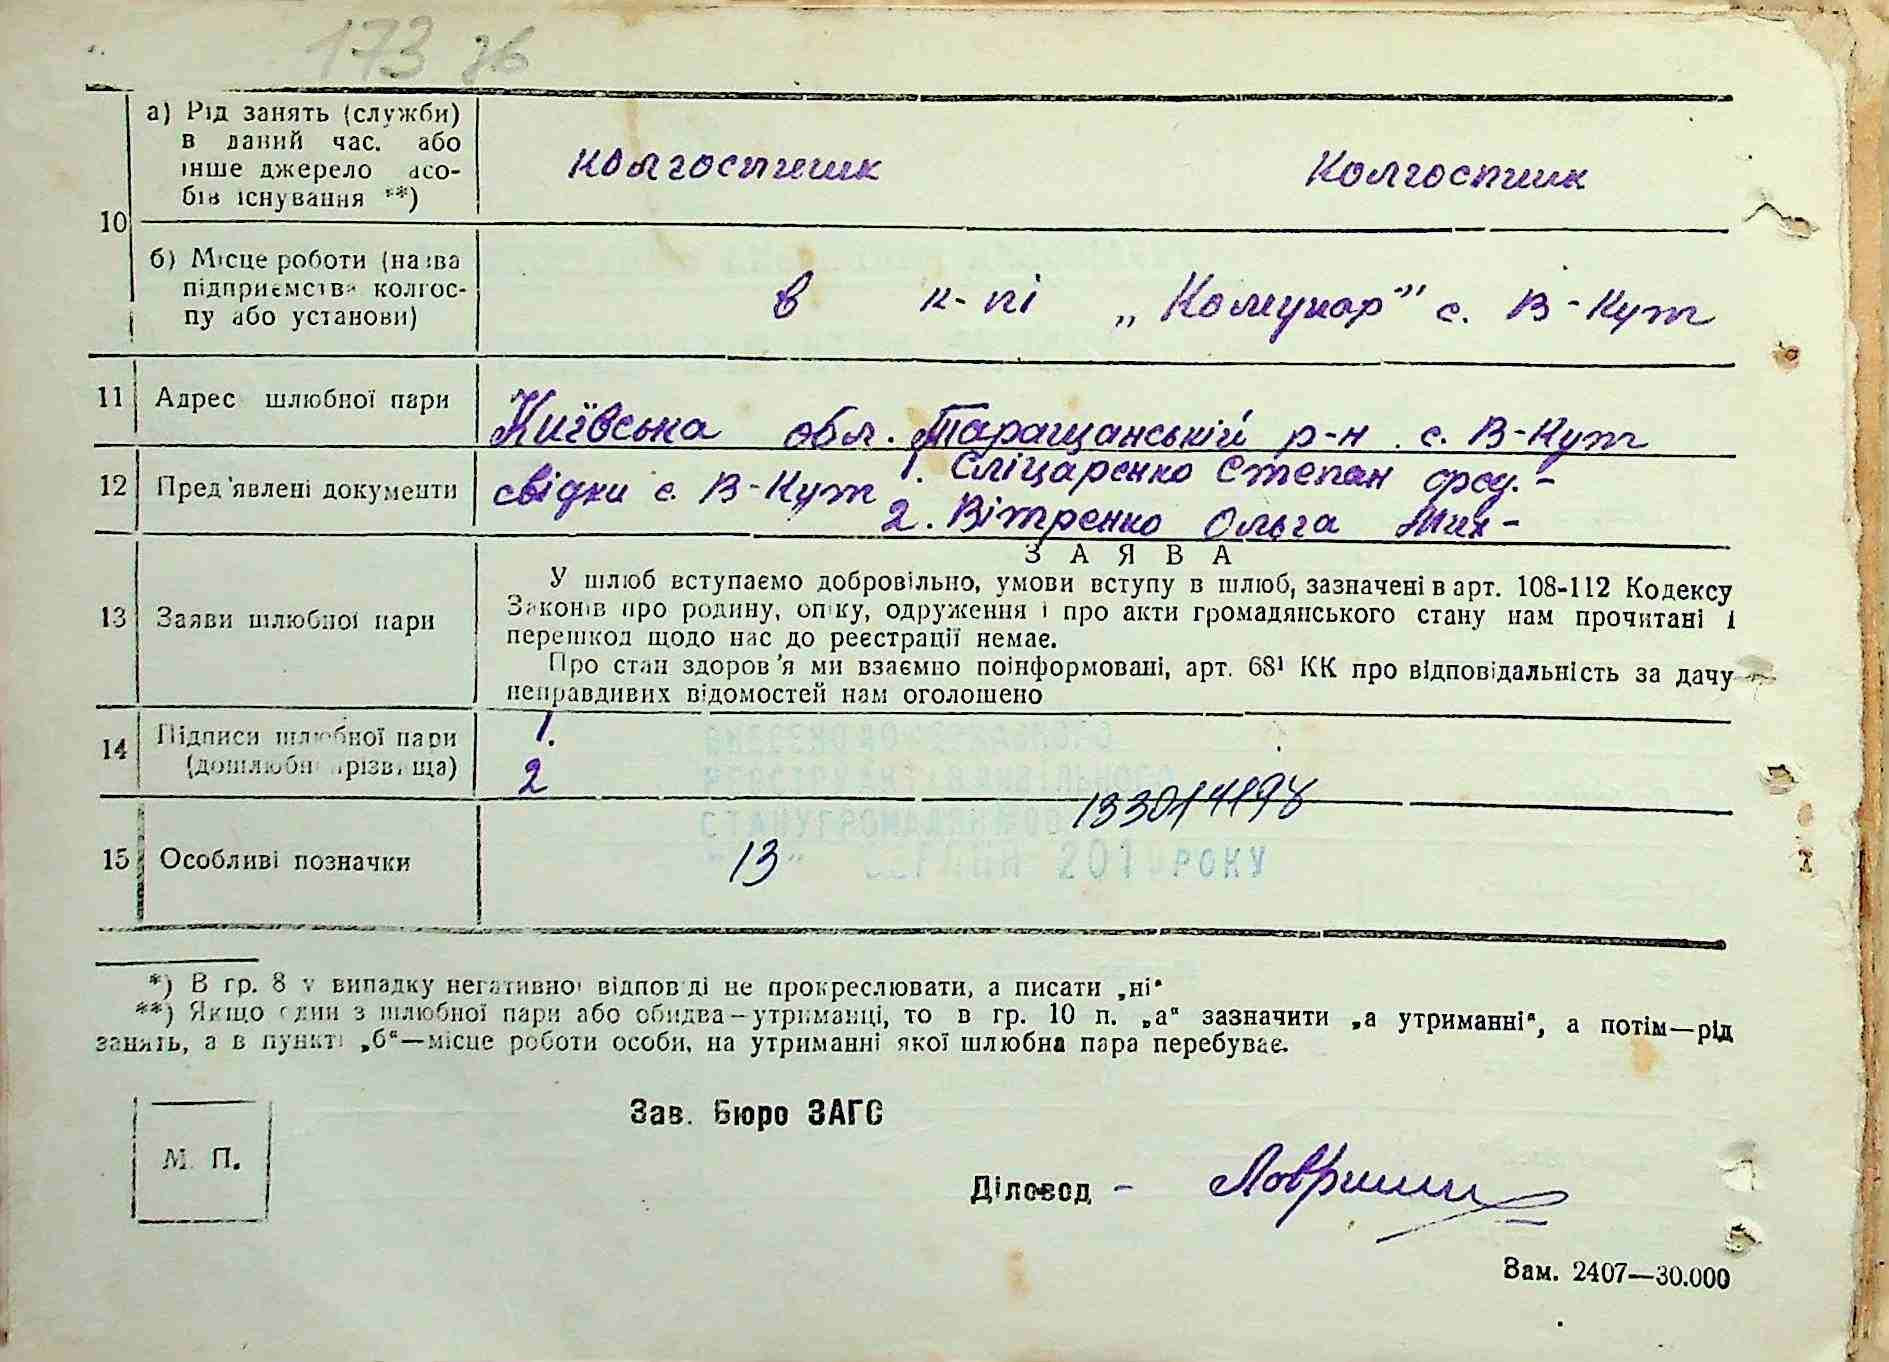 173 зб
10
а) Рід занять (служби)
в даний час. або
інше джерело асо-
бів існування **)
колгоспник Колгоспник
б) Місце роботи (назва
підприємства колгос-
пу або установи)
в к-пі „Комунар" с. В-Кут
11 Адрес шлюбної пари
Київська обл. Таращанській р-н. с. В-Кут
12 Пред'явлені документи
свідки с. В-Кут 1. Сліцаренко Степан
2. Вітренко Ольга Мих-
З А Я В А
13 Заяви шлюбної пари
У шлюб вступаємо добровільно, умови вступу в шлюб, зазначені в арт. 108-112 Кодексу
Законів про родину, опіку, одруження і про акти громадянського стану нам прочитані і
перешкод щодо нас до реєстрації немає.
Про стан здоров'я ми взаємно поінформовані, арт. 68¹ КК про відповідальність за дачу
неправдивих відомостей нам оголошено
14 Підписи шлюбної пари
(дошлюбні прізвища)
1.
2
15 Особливі позначки
13 РОКУ
*) В гр. 8 у випадку негативної відповіді не прокреслювати, а писати „ні"
**) Якщо один з шлюбної пари або обидва—утриманці, то в гр. 10 п. „а" зазначити „а утриманні", а потім—рід
занять, а в пункті „б"—місце роботи особи, на утриманні якої шлюбна пара перебуває.
Зав. Бюро ЗАГС
М. П.
Діловод -
Зам. 2407—30.000